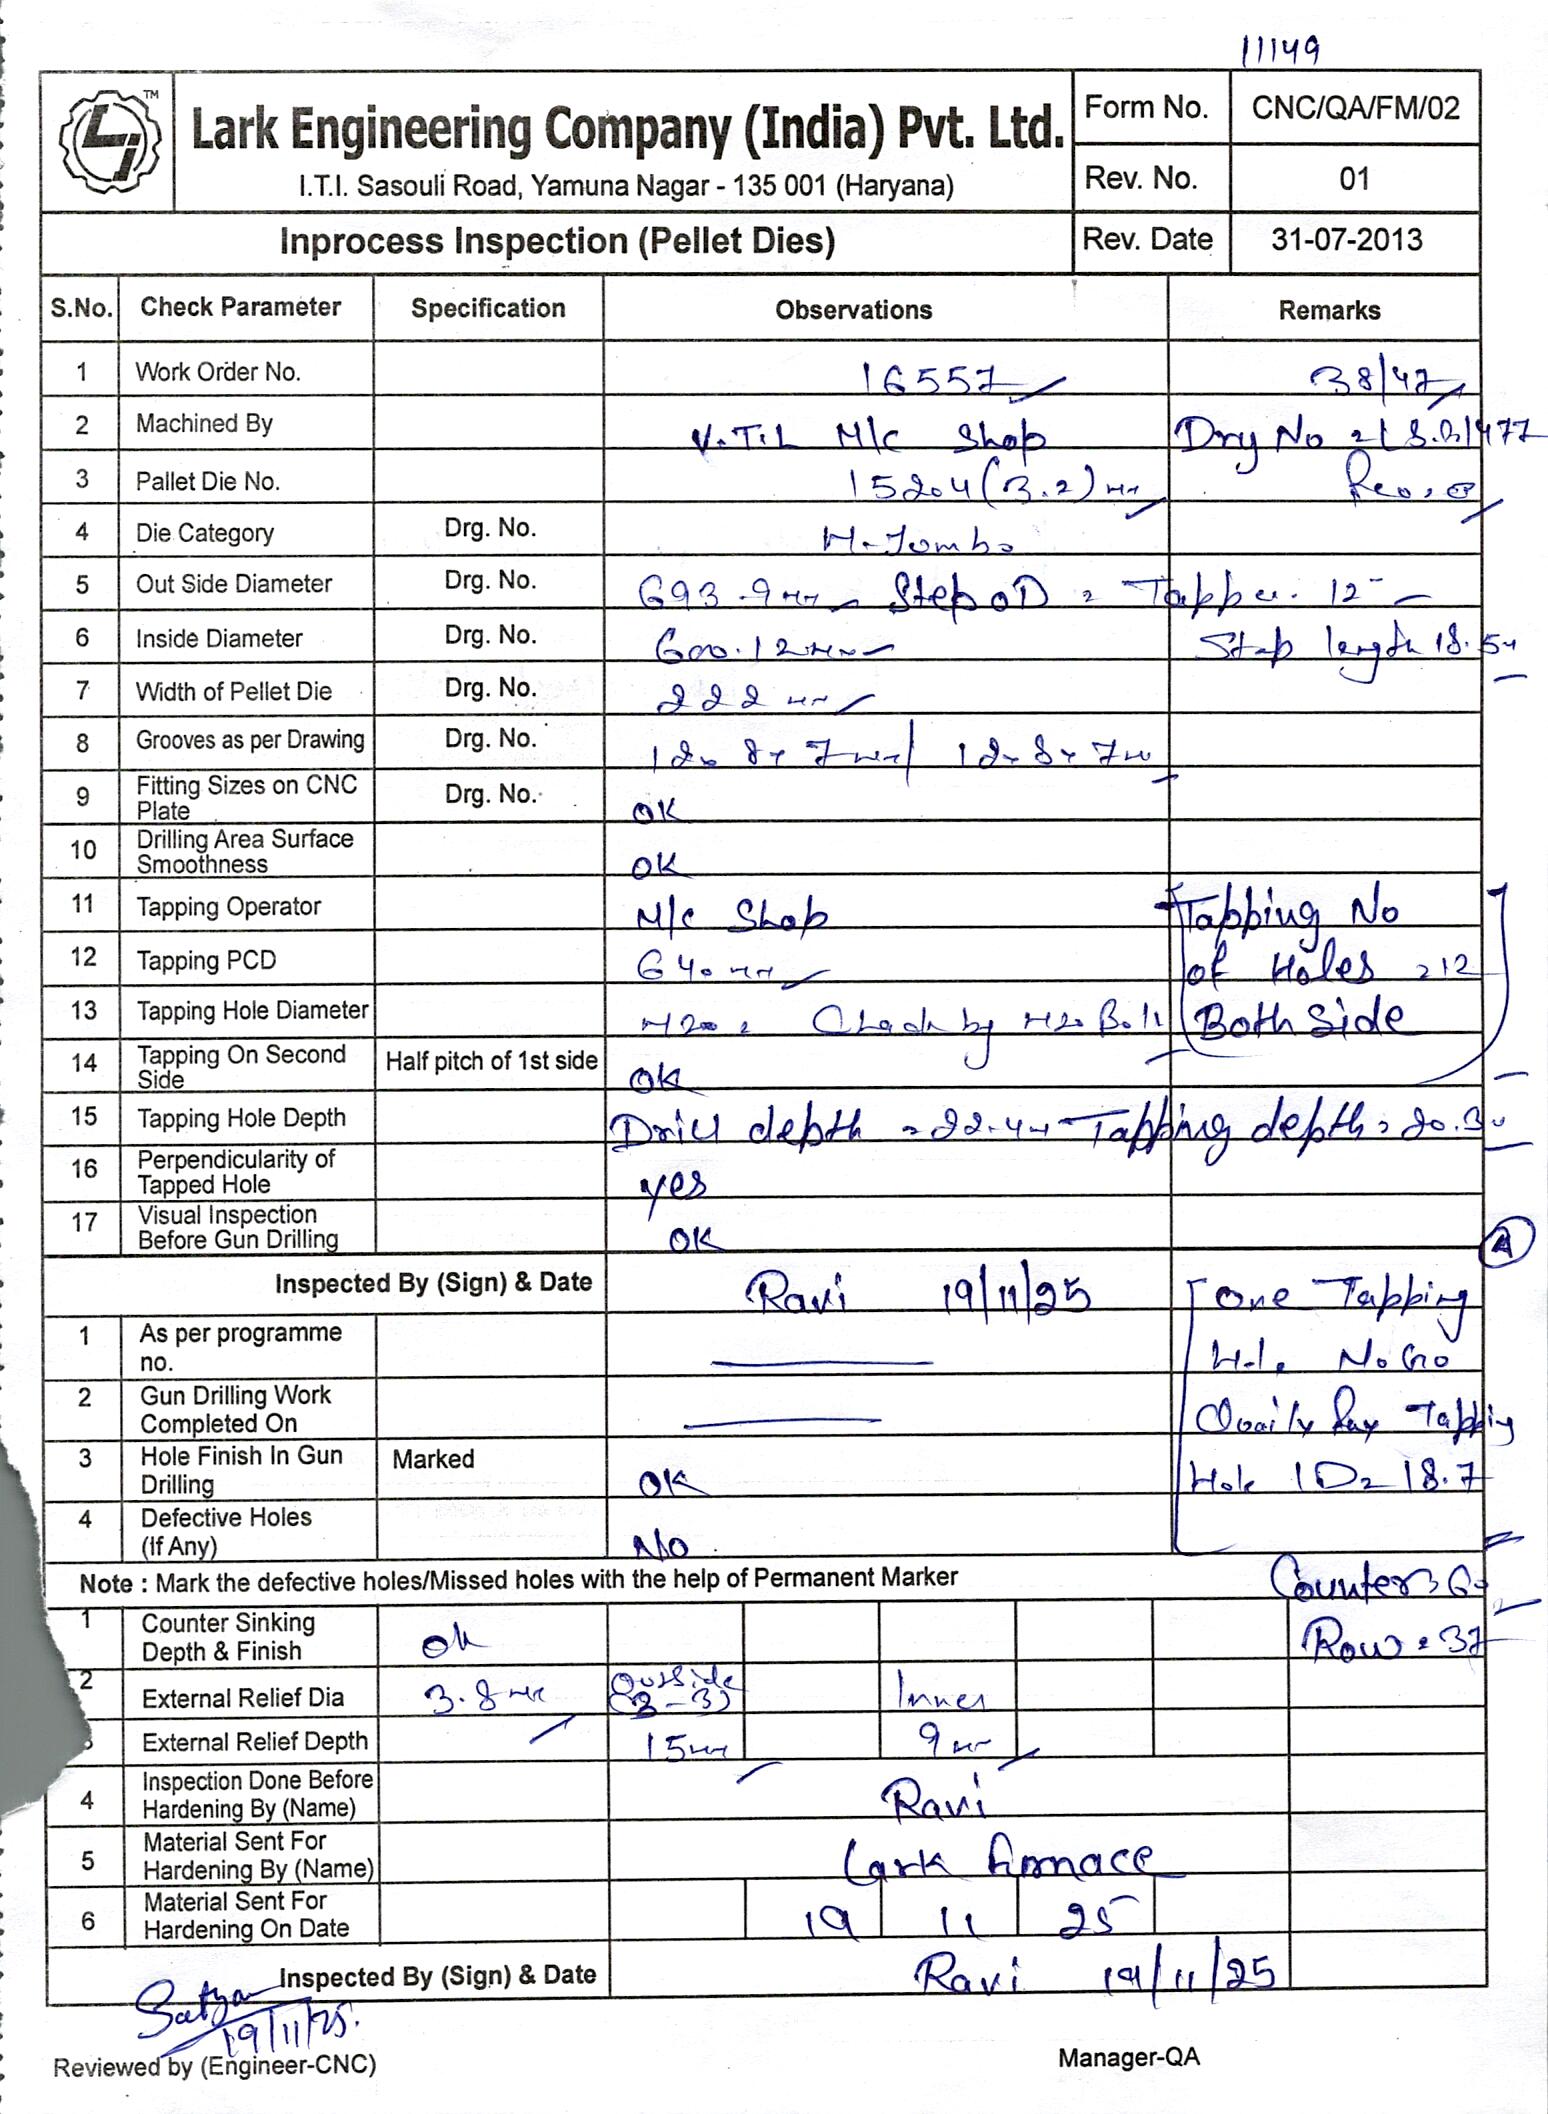 11149
TM
Lark Engineering Company (India) Pvt. Ltd.
I.T.I. Sasouli Road, Yamuna Nagar - 135 001 (Haryana)
Form No. CNC/QA/FM/02
Rev. No. 01
Inprocess Inspection (Pellet Dies) Rev. Date 31-07-2013
S.No. Check Parameter Specification Observations Remarks
1 Work Order No. 16557 38/47
2 Machined By V.T.L M/C Shop Drg No
3 Pallet Die No. 15204 (3.2) mm Rev. 0
4 Die Category Drg. No. H-Jombo
5 Out Side Diameter Drg. No. 693.9mm Step OD = Tapper. 12
6 Inside Diameter Drg. No. 600.12mm Step length 18.5
7 Width of Pellet Die Drg. No. 222 mm
8 Grooves as per Drawing Drg. No. 12x8x7mm/ 12x8x7
9 Fitting Sizes on CNC Plate Drg. No. OK
10 Drilling Area Surface Smoothness OK
11 Tapping Operator M/C Shop Tapping No
12 Tapping PCD 640mm of Holes =12
13 Tapping Hole Diameter M20 = Check by M20 Bolt Both Side
14 Tapping On Second Side Half pitch of 1st side OK
15 Tapping Hole Depth Drill depth =22.4 Tapping depth = 20.3
16 Perpendicularity of Tapped Hole yes
17 Visual Inspection Before Gun Drilling OK
A
Inspected By (Sign) & Date Ravi 19/11/25 One Tapping
1 As per programme no. Hole No Go
2 Gun Drilling Work Completed On Tapping
3 Hole Finish In Gun Drilling Marked OK Hole ID= 18.7
4 Defective Holes (If Any) No
Note : Mark the defective holes/Missed holes with the help of Permanent Marker Counter
1 Counter Sinking Depth & Finish ok Row = 37
2 External Relief Dia 3.8mm Outside (3-3) Inner
External Relief Depth 15mm 9mm
4 Inspection Done Before Hardening By (Name) Ravi
5 Material Sent For Hardening By (Name) Lark fornace
6 Material Sent For Hardening On Date 19 11 25
Inspected By (Sign) & Date Ravi 19/11/25
Satya
19/11/25.
Reviewed by (Engineer-CNC) Manager-QA